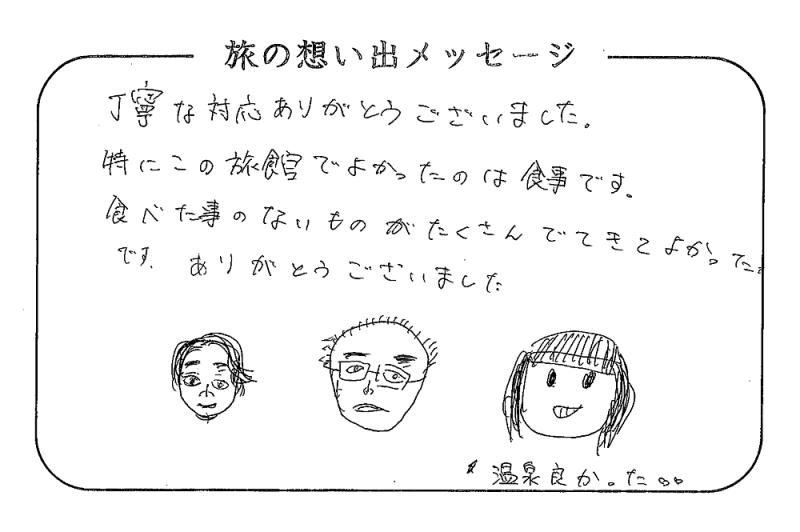 旅の想い出メッセージ
丁寧な対応ありがとうございました。
特にこの旅館でよかったのは食事です。
食べた事のないものがたくさんでてきてよかった
です. ありがとうございました
温泉良かった。。